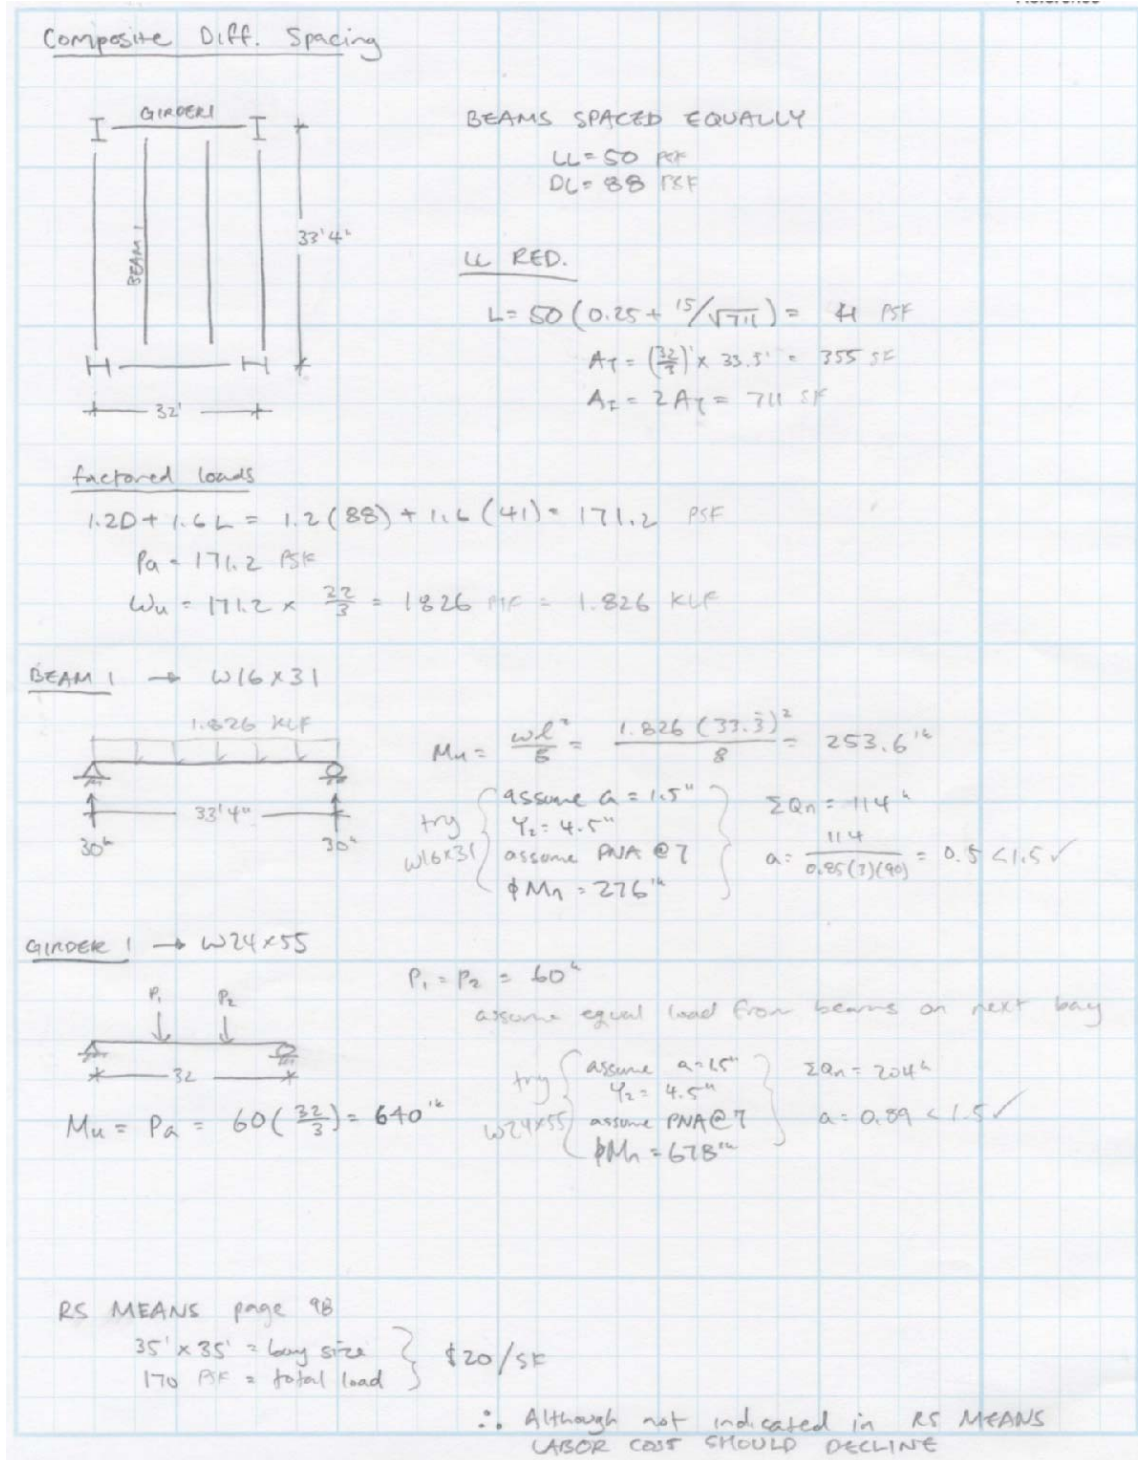 Composite Diff. Spacing
GIRDER 1
I I
BEAM 1
33'4"
32'
BEAMS SPACED EQUALLY
LL = 50 PSF
DL = 88 PSF
LL RED.
L = 50 (0.25 + 15/√711) = 41 PSF
A_T = (32/3)' x 33.3' = 355 SF
A_I = 2A_T = 711 SF
factored loads
1.2D + 1.6L = 1.2(88) + 1.6(41) = 171.2 PSF
Pa = 171.2 PSF
Wu = 171.2 x 32/3 = 1826 PLF = 1.826 KLF
BEAM 1 → W16x31
1.826 KLF
33'4"
30k 30k
Mu = wl²/8 = 1.826 (33.3̄)²/8 = 253.6 'k
try W16x31
assume a = 1.5"
Y₂ = 4.5"
assume PNA @ 7
φMn = 276 'k
ΣQn = 114 k
a = 114/0.85(3)(90) = 0.5 < 1.5 ✓
GIRDER 1 → W24x55
P₁ P₂
32
P₁ = P₂ = 60k
assume equal load from beams on next bay
Mu = Pa = 60(32/3) = 640 'k
try W24x55
assume a = 1.5"
Y₂ = 4.5"
assume PNA @ 7
φMn = 678 'k
ΣQn = 204 k
a = 0.89 < 1.5 ✓
RS MEANS page 98
35' x 35' = bay size
170 PSF = total load
$20/SF
∴ Although not indicated in RS MEANS
LABOR COST SHOULD DECLINE